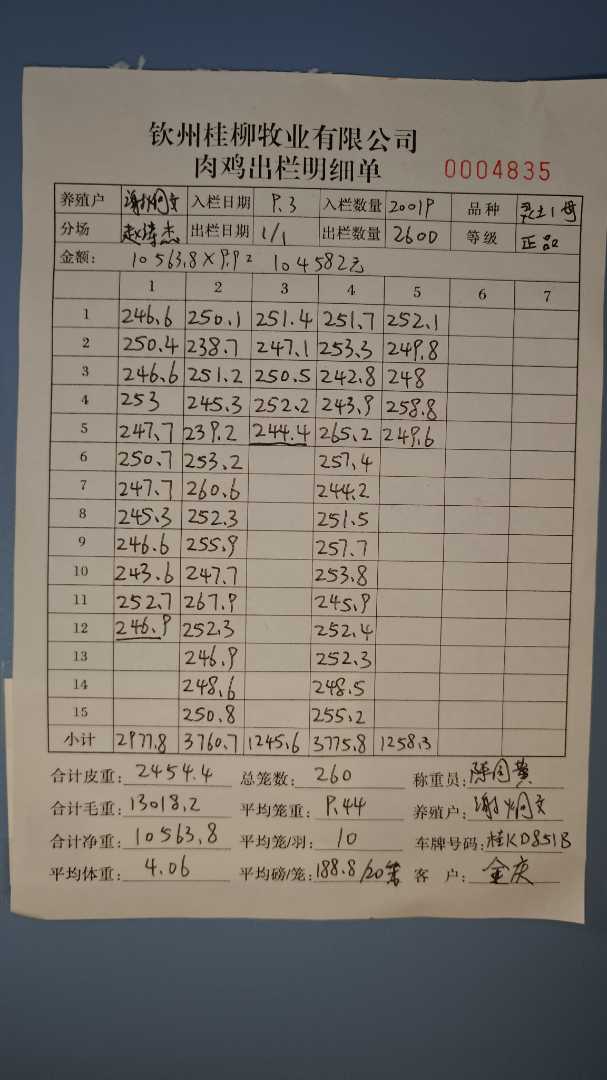 钦州桂柳牧业有限公司
肉鸡出栏明细单 0004835
养殖户 谢炯文 入栏日期 9.3 入栏数量 20019 品种 灵土1号
分场 赵 杰 出栏日期 1/1 出栏数量 2600 等级 正品
金额: 10563.8×9.9= 104582元
1 2 3 4 5 6 7
1 246.6 250.1 251.4 251.7 252.1
2 250.4 238.7 247.1 253.3 249.8
3 246.6 251.2 250.5 242.8 248
4 253 245.3 252.2 243.9 258.8
5 247.7 239.2 244.4 265.2 249.6
6 250.7 253.2 257.4
7 247.7 260.6 244.2
8 245.3 252.3 251.5
9 246.6 255.9 257.7
10 243.6 247.7 253.8
11 252.7 267.9 245.9
12 246.9 252.3 252.4
13 246.9 252.3
14 248.6 248.5
15 250.8 255.2
小计 2977.8 3760.7 1245.6 3775.8 1258.3
合计皮重: 2454.4 总笼数: 260 称重员: 陈国黄
合计毛重: 13018.2 平均笼重: 9.44 养殖户: 谢炯文
合计净重: 10563.8 平均笼/羽: 10 车牌号码: 桂KD851B
平均体重: 4.06 平均磅/笼: 188.8/20笼 客户: 金庆